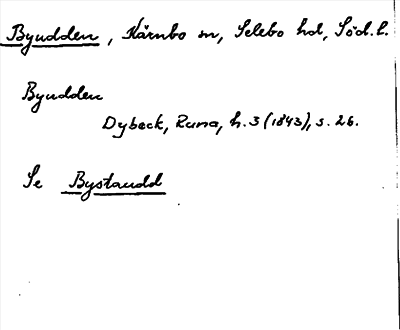 Byudden, Kärnbo sn, Selebo hd, Söd.l.
Byudden
Dybeck, Runa, h.3 (1843), s. 26.
Se Bystaudd